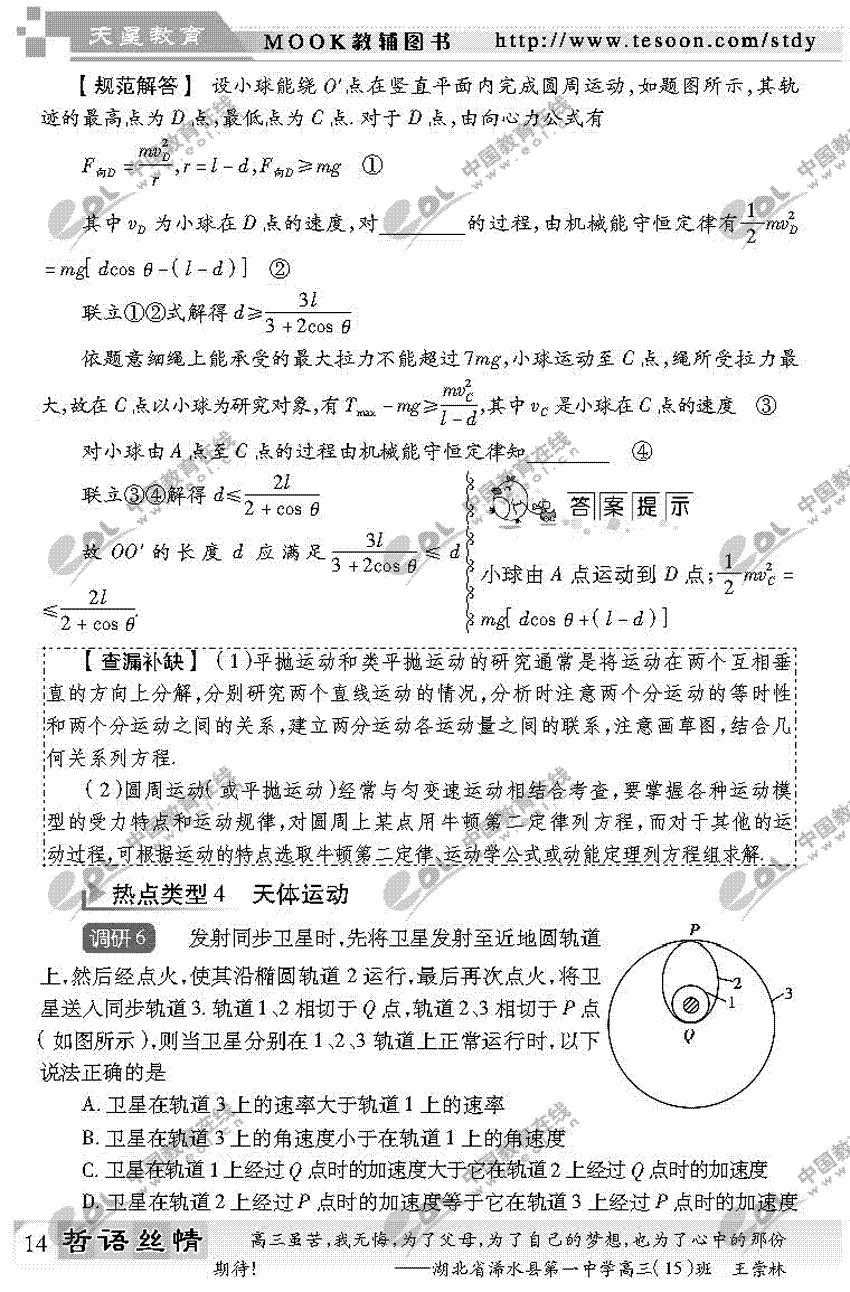 天星教育 MOOK教辅图书 http://www.tesoon.com/stdy
【规范解答】 设小球能绕 O′点在竖直平面内完成圆周运动,如题图所示,其轨
迹的最高点为 D 点,最低点为 C 点.对于 D 点,由向心力公式有
F向D = mv_D²/r, r = l - d, F向D ≥ mg ①
其中 v_D 为小球在 D 点的速度,对________的过程,由机械能守恒定律有 1/2 mv_D²
= mg[dcos θ-(l-d)] ②
联立①②式解得 d ≥ 3l/(3+2cos θ)
依题意细绳上能承受的最大拉力不能超过7mg,小球运动至 C 点,绳所受拉力最
大,故在 C 点以小球为研究对象,有 T_max - mg ≥ mv_C²/(l-d),其中 v_C 是小球在 C 点的速度 ③
对小球由 A 点至 C 点的过程由机械能守恒定律知________ ④
联立③④解得 d ≤ 2l/(2+cos θ)
故 OO′的长度 d 应满足 3l/(3+2cos θ) ≤ d
≤ 2l/(2+cos θ).
答案提示
小球由 A 点运动到 D 点; 1/2 mv_C² =
mg[dcos θ+(l-d)]
【查漏补缺】 (1)平抛运动和类平抛运动的研究通常是将运动在两个互相垂
直的方向上分解,分别研究两个直线运动的情况,分析时注意两个分运动的等时性
和两个分运动之间的关系,建立两分运动各运动量之间的联系,注意画草图,结合几
何关系列方程.
(2)圆周运动(或平抛运动)经常与匀变速运动相结合考查,要掌握各种运动模
型的受力特点和运动规律,对圆周上某点用牛顿第二定律列方程,而对于其他的运
动过程,可根据运动的特点选取牛顿第二定律、运动学公式或动能定理列方程组求解.
热点类型4 天体运动
调研6 发射同步卫星时,先将卫星发射至近地圆轨道
上,然后经点火,使其沿椭圆轨道 2 运行,最后再次点火,将卫
星送入同步轨道3.轨道1、2 相切于 Q 点,轨道2、3 相切于 P 点
(如图所示),则当卫星分别在 1、2、3 轨道上正常运行时,以下
说法正确的是
P
2
3
1
Q
A.卫星在轨道 3 上的速率大于轨道 1 上的速率
B.卫星在轨道 3 上的角速度小于在轨道 1 上的角速度
C.卫星在轨道 1 上经过 Q 点时的加速度大于它在轨道 2 上经过 Q 点时的加速度
D.卫星在轨道 2 上经过 P 点时的加速度等于它在轨道 3 上经过 P 点时的加速度
14 哲语丝情 高三虽苦,我无悔,为了父母,为了自己的梦想,也为了心中的那份
期待! ——湖北省浠水县第一中学高三(15)班 王崇林